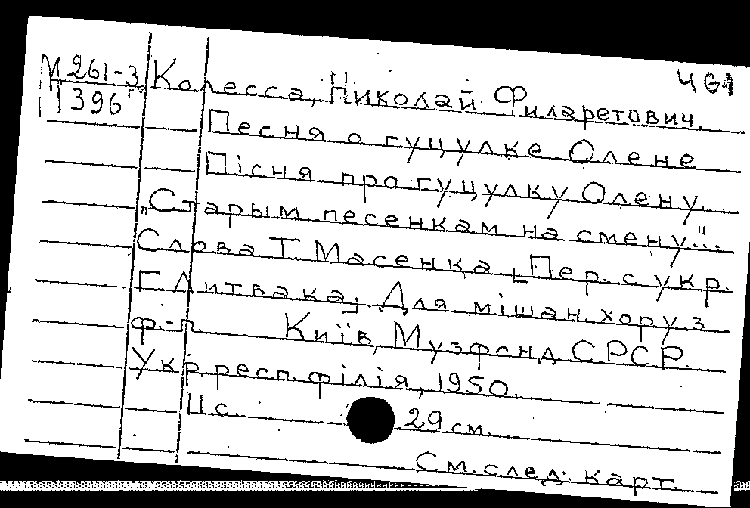 М 261-3 Колесса, Николай Филаретович. 461
1396
Песня о гуцулке Олене
Пісня про гуцулку Олену.
"Старым песенкам на смену..."
Слова Т. Масенка [Пер. с укр.
Г. Литвака] Для мішан. хору з
ф-п. Київ, Музфонд СРСР.
Укр. респ. філія, 1950.
11 с. 29 см.
См. след. карт.